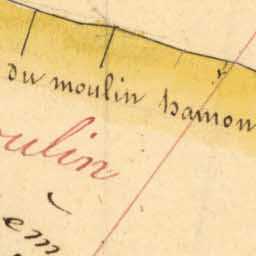 du moulin hamon
oulin
em